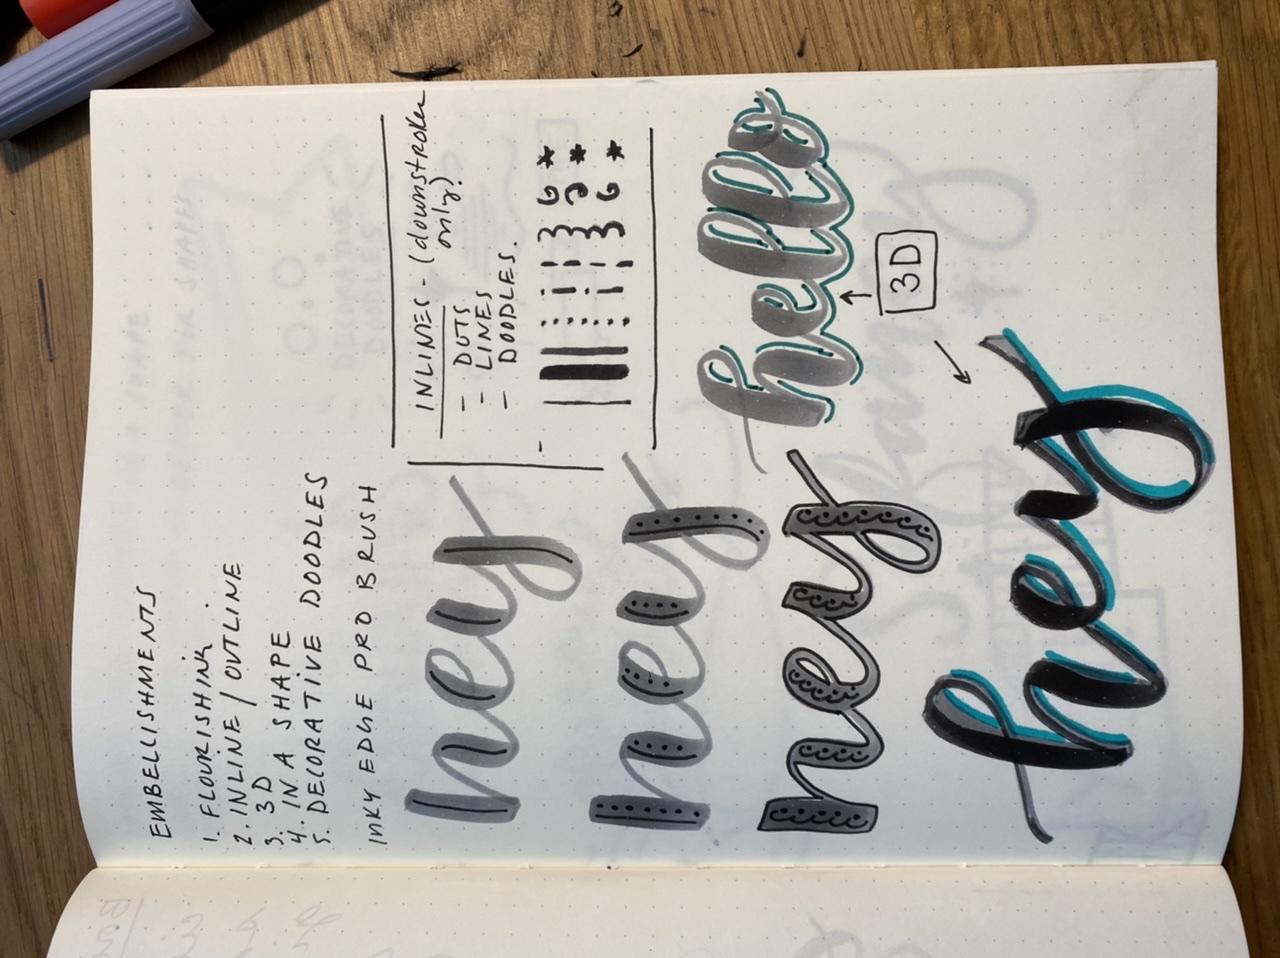 EMBELLISHMENTS
1. FLOURISHING
2. INLINE / OUTLINE
3. 3D
4. IN A SHAPE
5. DECORATIVE DOODLES
INKY EDGE PRO BRUSH
INLINES - (downstrokes
only!)
- DOTS
- LINES
- DOODLES.
hey
hey
hey
hello
3D
hey